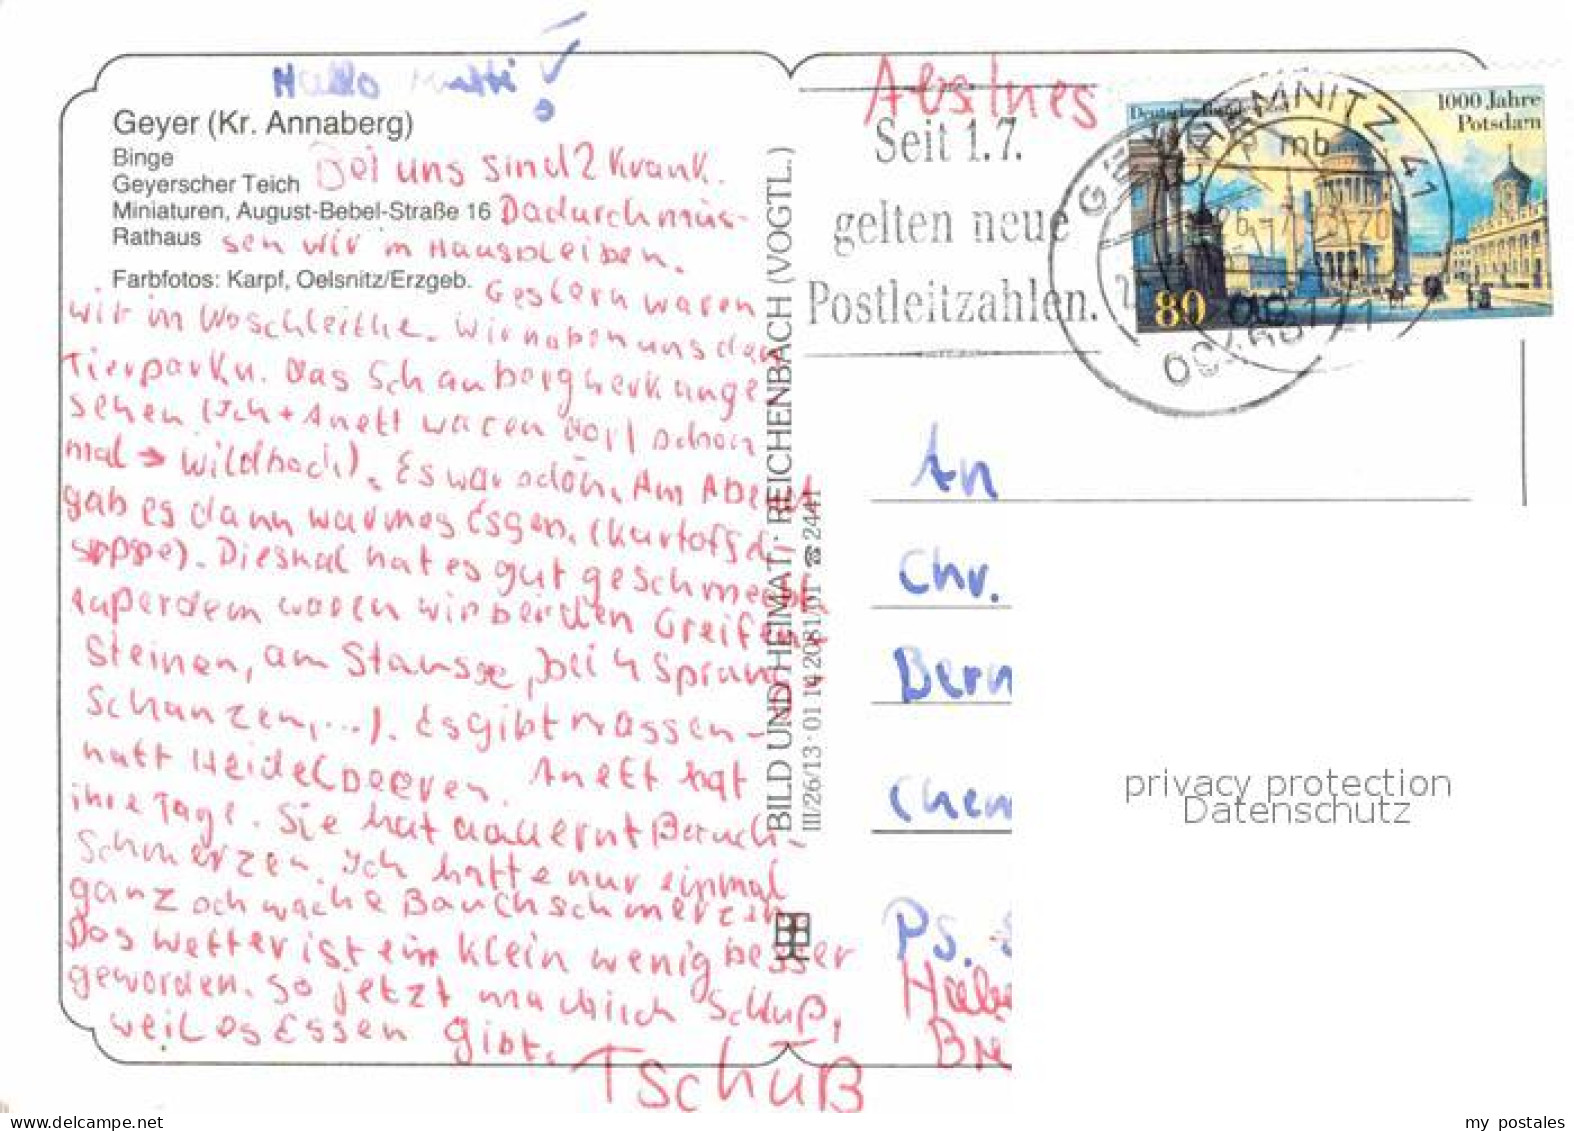 Hallo Mutti!
Geyer (Kr. Annaberg)
Binge
Geyerscher Teich
Miniaturen, August-Bebel-Straße 16
Rathaus
Farbfotos: Karpf, Oelsnitz/Erzgeb.
Bei uns sind 2 krank.
Dadurch müs-
sen wir im Haus bleiben.
Gestern waren
wir in Waschleithe. Wir haben uns den
Tierpark u. das Schaubergwerk ange
sehen (Ich + Anett waren dort schon
mal → Wildbach). Es war schön. Am Abend
gab es dann warmes Essen. (Kartoffel-
suppe). Diesmal hat es gut geschmeckt.
Außerdem waren wir bei den Greifen-
steinen, am Stausee, bei 4 Sprung
schanzen, ...). Es gibt massen-
haft Heidelbeeren. Anett hat
ihre Tage. Sie hat dauernt Bauch-
schmerzen. Ich hatte nur einmal
ganz schwache Bauchschmerzen
Das Wetter ist ein klein wenig besser
geworden. So jetzt mach ich Schluß,
weil es Essen gibt.
Tschüß
BILD UND HEIMAT · REICHENBACH (VOGTL.)
III/26/13 · 01 14 2081/01 ☎ 2441
Abs. Ines
Seit 1.7.
gelten neue
Postleitzahlen.
CHEMNITZ 41
mb
Deutsche
80
1000 Jahre
Potsdam
An
Chr.
Bern
Chem
Ps.
Habe
Bre
privacy protection
Datenschutz
my postales